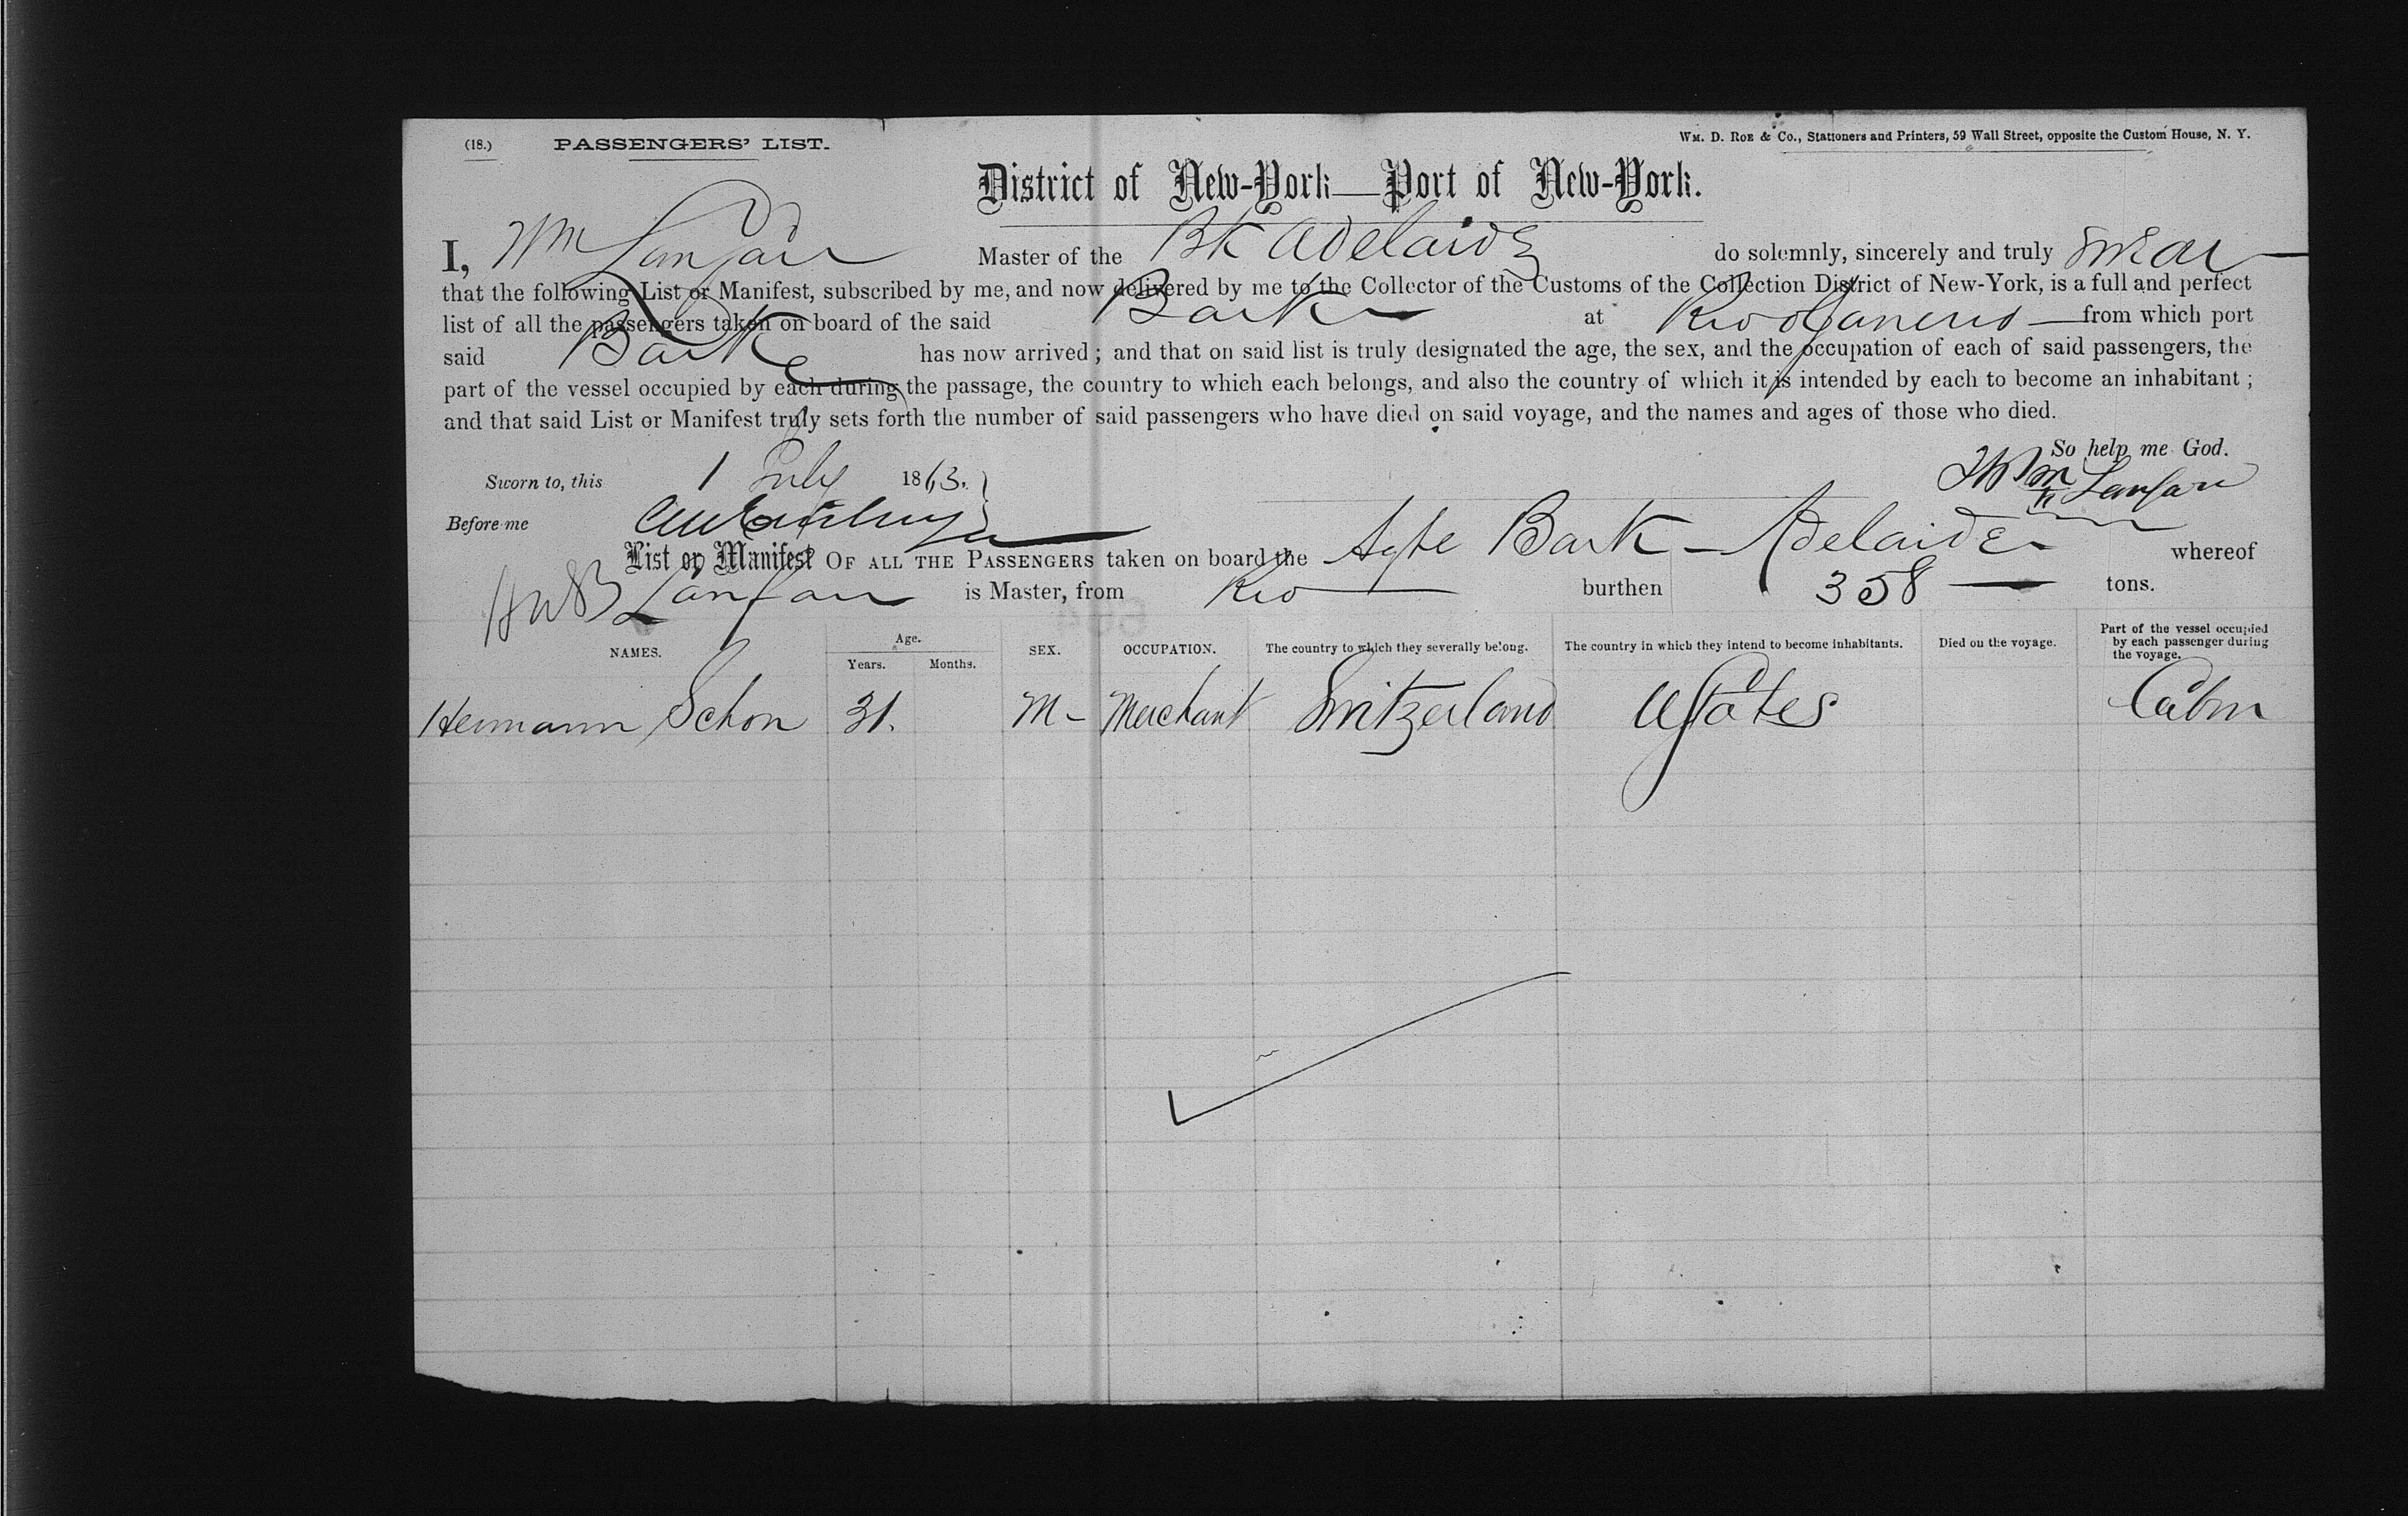 (18.) PASSENGERS' LIST. WM. D. ROE & Co., Stationers and Printers, 59 Wall Street, opposite the Custom House, N. Y.
District of New-York—Port of New-York.
I, Wm Master of the Bk Adelaide do solemnly, sincerely and truly swear
that the following List or Manifest, subscribed by me, and now delivered by me to the Collector of the Customs of the Collection District of New-York, is a full and perfect
list of all the passengers taken on board of the said Bark at Rio Janeiro from which port
said Bark has now arrived; and that on said list is truly designated the age, the sex, and the occupation of each of said passengers, the
part of the vessel occupied by each during the passage, the country to which each belongs, and also the country of which it is intended by each to become an inhabitant;
and that said List or Manifest truly sets forth the number of said passengers who have died on said voyage, and the names and ages of those who died.
So help me God.
Sworn to, this 1 July 1863. Wm
Before me
List or Manifest OF ALL THE PASSENGERS taken on board the Bark Adelaide whereof
is Master, from Rio burthen 358 tons.
NAMES. Age. Years. Months. SEX. OCCUPATION. The country to which they severally belong. The country in which they intend to become inhabitants. Died on the voyage. Part of the vessel occupied by each passenger during the voyage.
Hermann Schon 31. M- Merchant Switzerland UStates Cabin